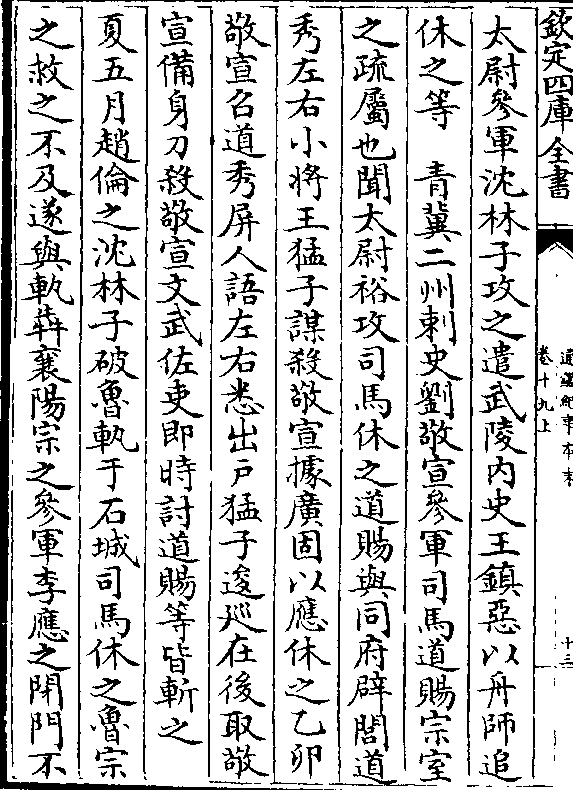 欽定四庫全書
通鑑紀事本末
卷十九上
十三
太尉參軍沈林子攻之遣武陵內史王鎮惡以舟師追
休之等　青冀二州刺史劉敬宣參軍司馬道賜宗室
之疏屬也聞太尉裕攻司馬休之道賜與同府辟閭道
秀左右小將王猛子謀殺敬宣據廣固以應休之乙卯
敬宣召道秀屏人語左右悉出戶猛子逡巡在後取敬
宣備身刀殺敬宣文武佐吏即時討道賜等皆斬之
夏五月趙倫之沈林子破魯軌于石城司馬休之魯宗
之救之不及遂與軌犇襄陽宗之參軍李應之閉門不